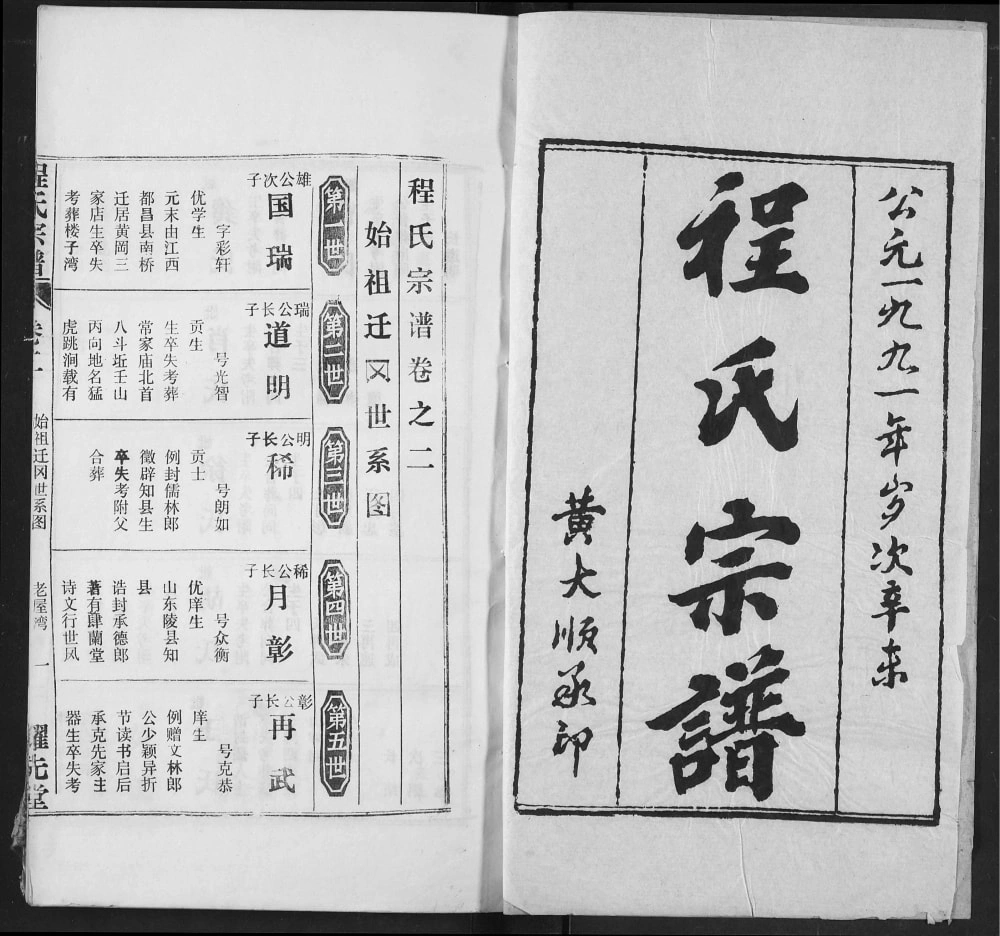 公元一九九一年岁次辛未
程氏宗譜
黄大顺承印
程氏宗谱卷之二
始祖迁冈世系图
第一世
雄公次子
国瑞
字彩轩
优学生
元末由江西
都昌县南桥
迁居黄岡三
家店生卒失
考葬楼子湾
第二世
瑞公长子
道明
号光智
贡生
生卒失考葬
常家庙北首
八斗坵壬山
丙向地名猛
虎跳涧载有
第三世
明公长子
稀
号朗如
贡士
例封儒林郎
徵辟知县生
卒失考附父
合葬
第四世
稀公长子
月彰
号众衡
优庠生
山东陵县知
县
诰封承德郎
著有肆蘭堂
诗文行世风
第五世
彰公长子
再武
号克恭
庠生
例赠文林郎
公少颖异折
节读书启后
承克先家主
器生卒失考
程氏宗譜
卷二
始祖迁冈世系图
老屋湾
一
耀先堂